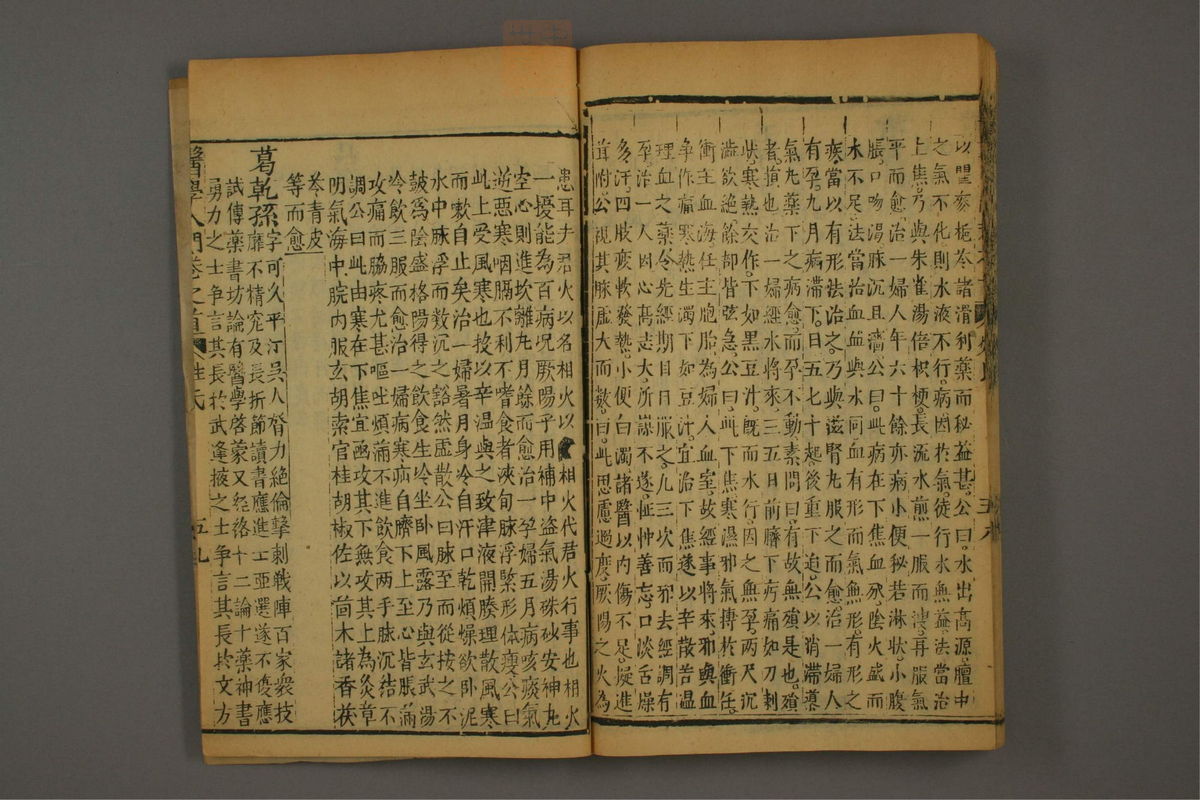 以聞蔘梔苓諸滑利藥而秘益甚公曰水出高源膻中
之氣不化則水液不行病因於氣徒行水無益法當治
上焦乃與朱雀湯倍枳梗長流水煎一服而溲再服氣
平而愈治一婦人年六十餘亦病小便秘若淋狀小腹
脹口吻渴脉沉且濇公曰此病在下焦血外陰火盛而
水不足法當治血血與水同血有形而氣無形有形之
疾當以有形法治之乃與滋腎丸服之而愈治一婦人
有孕九月病滯下日五七十起後重下迫公以消滯導
氣丸藥下之病愈而孕不動素問曰有故無殞是也殞
者損也治一婦經水將來三五日前臍下疞痛如刀刺
狀寒熱交作下如黑豆汁既而水行因之無孕兩尺沉
澁欲絶餘部皆弦急公曰此下焦寒濕邪氣摶於衝任
衝主血海任主胞胎為婦人血室故經事將來邪與血
争作痛寒熱生濁下如豆汁宜治下焦遂以辛散苦温
理血之藥令先經期日日服之凡三次而邪去經調有
孕治一人因心高志大所謀不遂怔忡善忘口淡舌燥
多汗四肢疲軟發熱小便白濁諸醫以内傷不足擬進
茸附公視其脉虚大而數曰此思慮過度厥陽之火為
患耳夫君火以名相火以 相火代君火行事也相火
一擾能為百病况厥陽乎用補中益氣湯硃砂安神丸
空心則進坎離丸月餘而愈治一孕婦五月病咳痰氣
逆惡寒咽膈不利不嗜食者浹旬脉浮緊形体瘦公曰
此上受風寒也投以辛温與之致津液開腠理散風寒
而嗽自止矣治一婦暑月身冷自汗口乾煩燥欲卧泥
水中脉浮而數沉之豁然虚散公曰脉至而從按之不
鼓為陰盛格陽得之飲食生冷坐卧風露乃與玄武湯
冷飲三服而愈治一婦病寒疝自臍下上至心皆脹滿
攻痛而脇疼尤甚嘔吐煩滿不進飲食兩手脉沉結不
調公曰此由寒在下焦宜亟攻其下無攻其上為灸章
門氣海中脘内服玄胡索官桂胡椒佐以茴木諸香茯
苓青皮
等而愈
葛乾孫字可久平江吳人膂力絶倫擊刺戰陣百家衆技
靡不精究及長折節讀書應進士亞選遂不復應
試傳藥書坊論有醫學啓蒙又經絡十二論十藥神書
勇力之士争言其長於武逢掖之士争言其長於文方
醫學入門卷之首 姓氏 五九